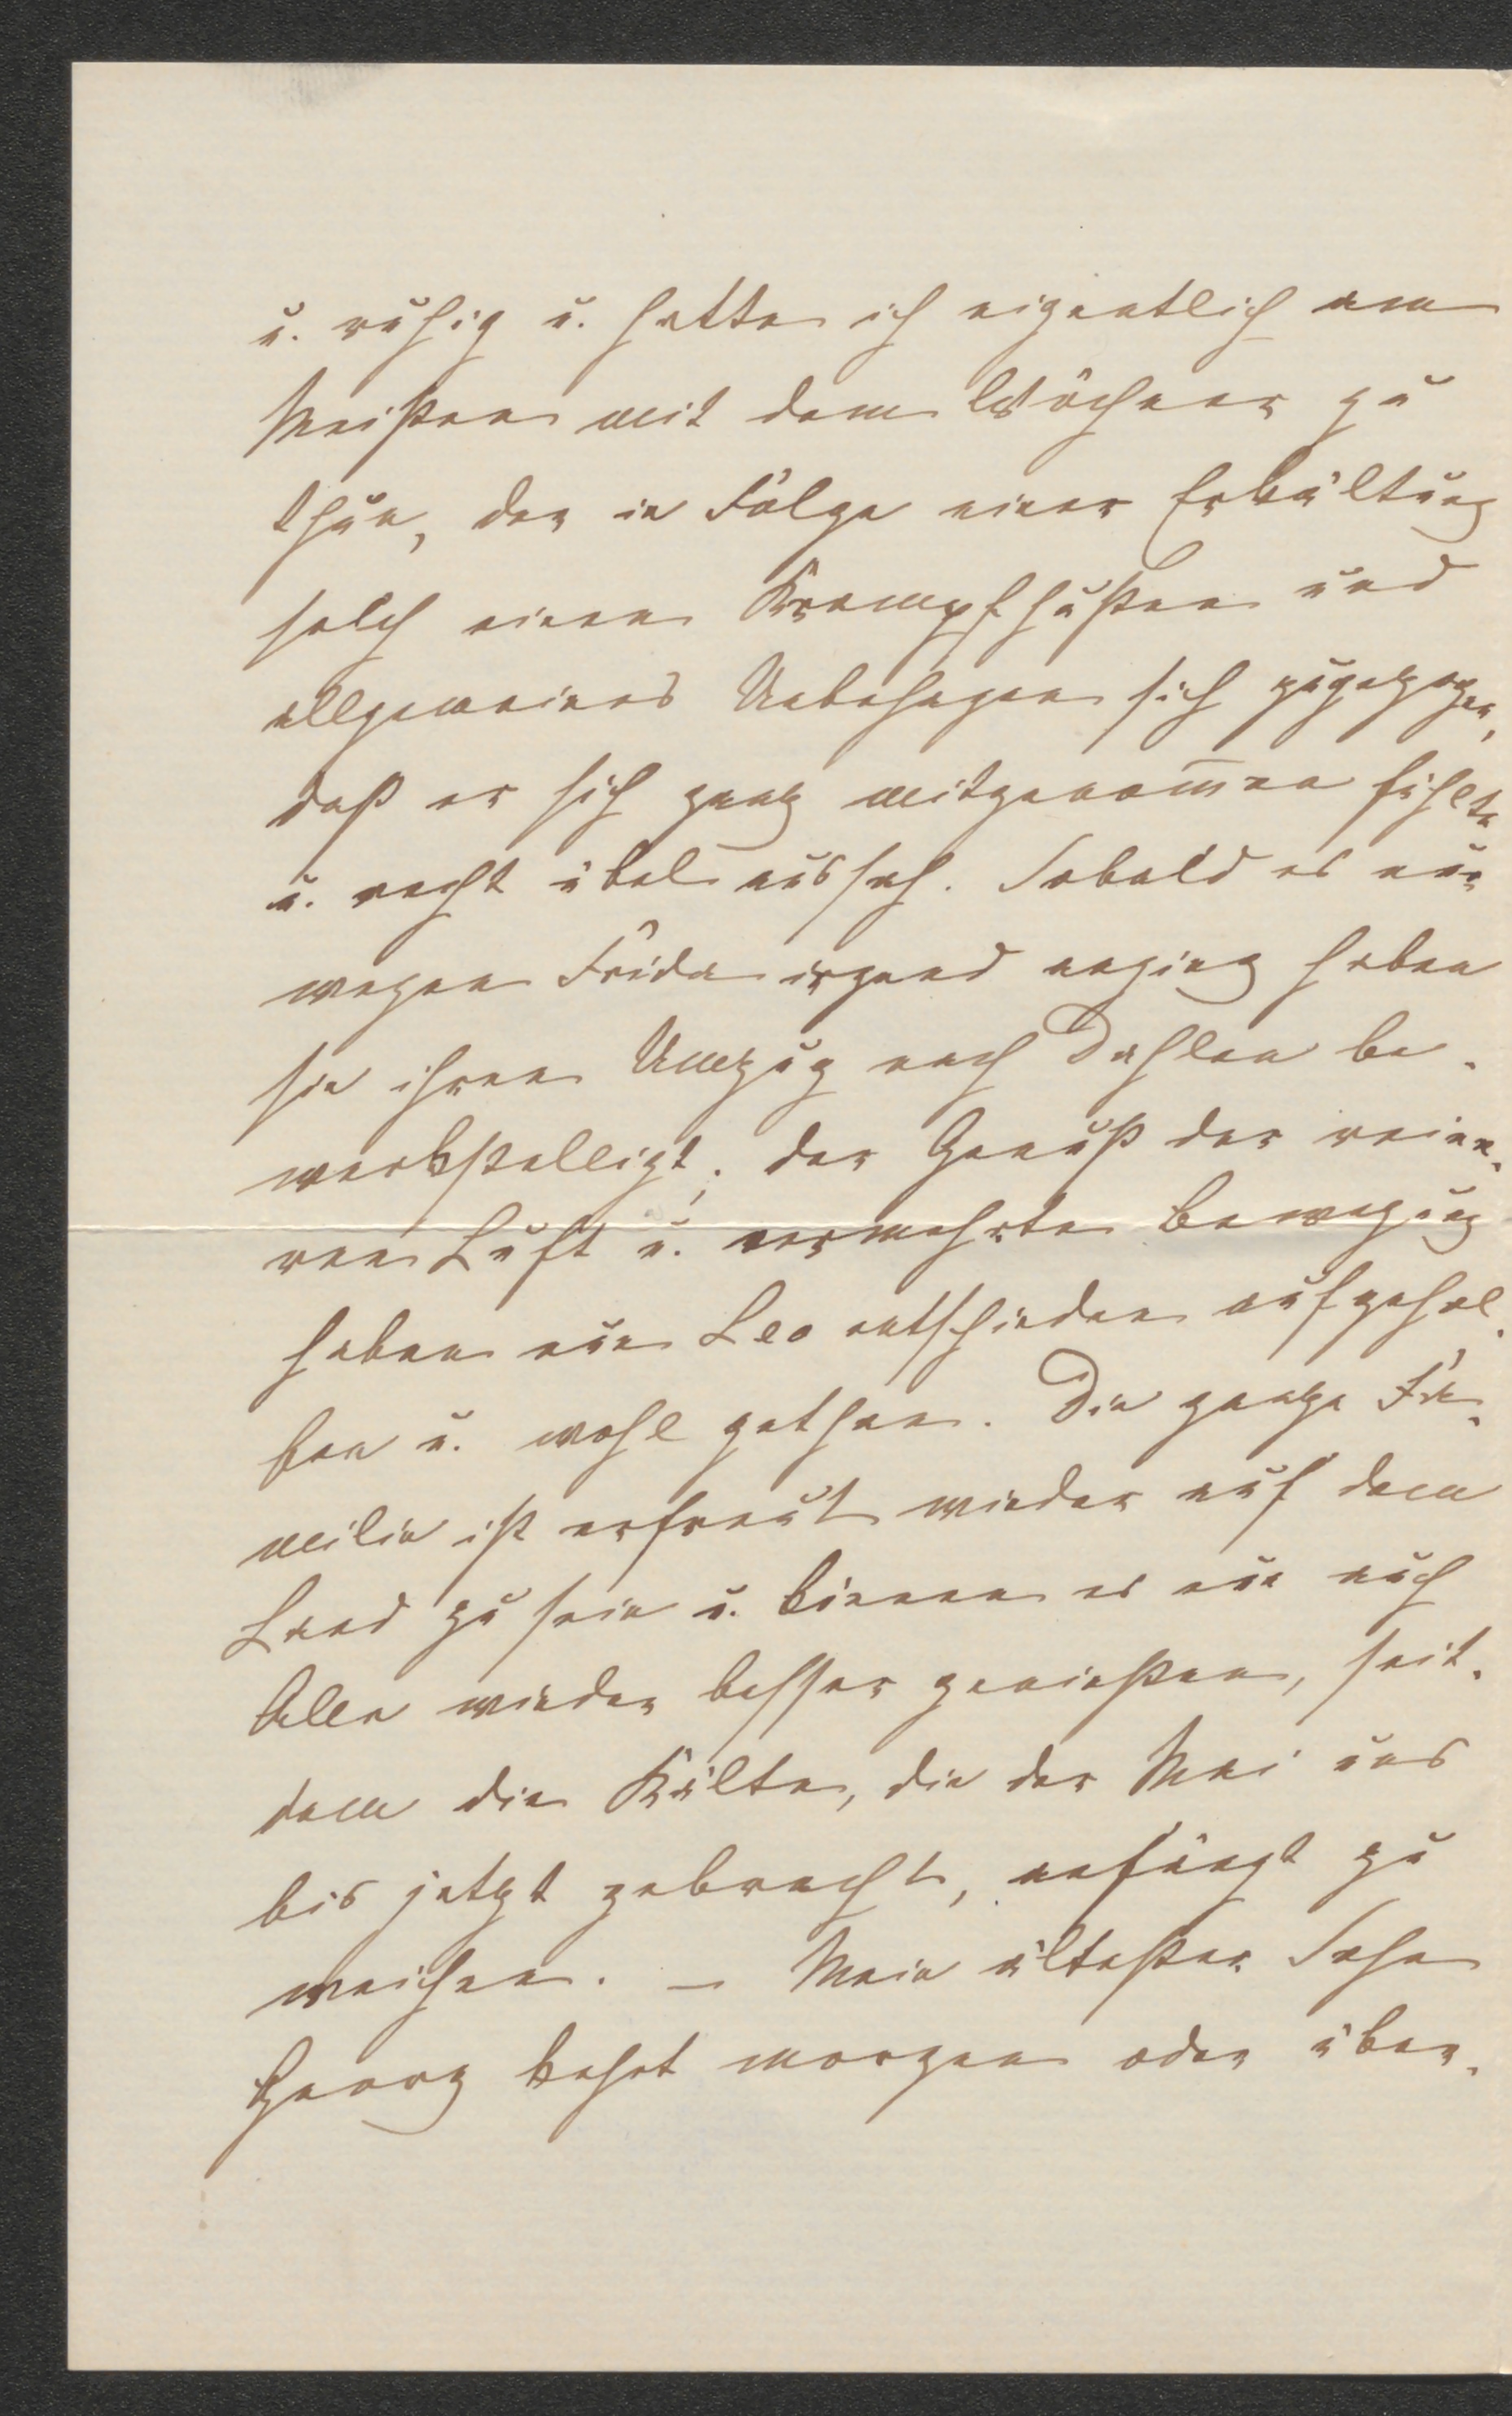 u. ruhig u. hatte ich eigentlich am
Meisten mit dem Wöchner zu
thun, der in Folge einer Erkältung
solch einen Krampfhusten und
allgemeines Unbehagen sich zugezogen,
daß er sich ganz mitgenom̅en fühlte
u. recht übel aussah. Sobald es nur
wegen Frida irgend anging haben
sie ihren Umzug nach Dahlen be-
werkstelligt; der Genuß der reine-
ren Luft u. vermehrte Bewegung
haben nun Leo entschieden aufgehol-
fen u. wohl gethan. Die ganze Fa-
milie ist erfreut wieder auf dem
Land zu sein u. können es nun auch
Alle wieder besser genießen, seit-
dem die Kälte, die der Mai uns
bis jetzt gebracht, anfängt zu
weichen. – Mein ältester Sohn
Georg kehrt morgen oder über-